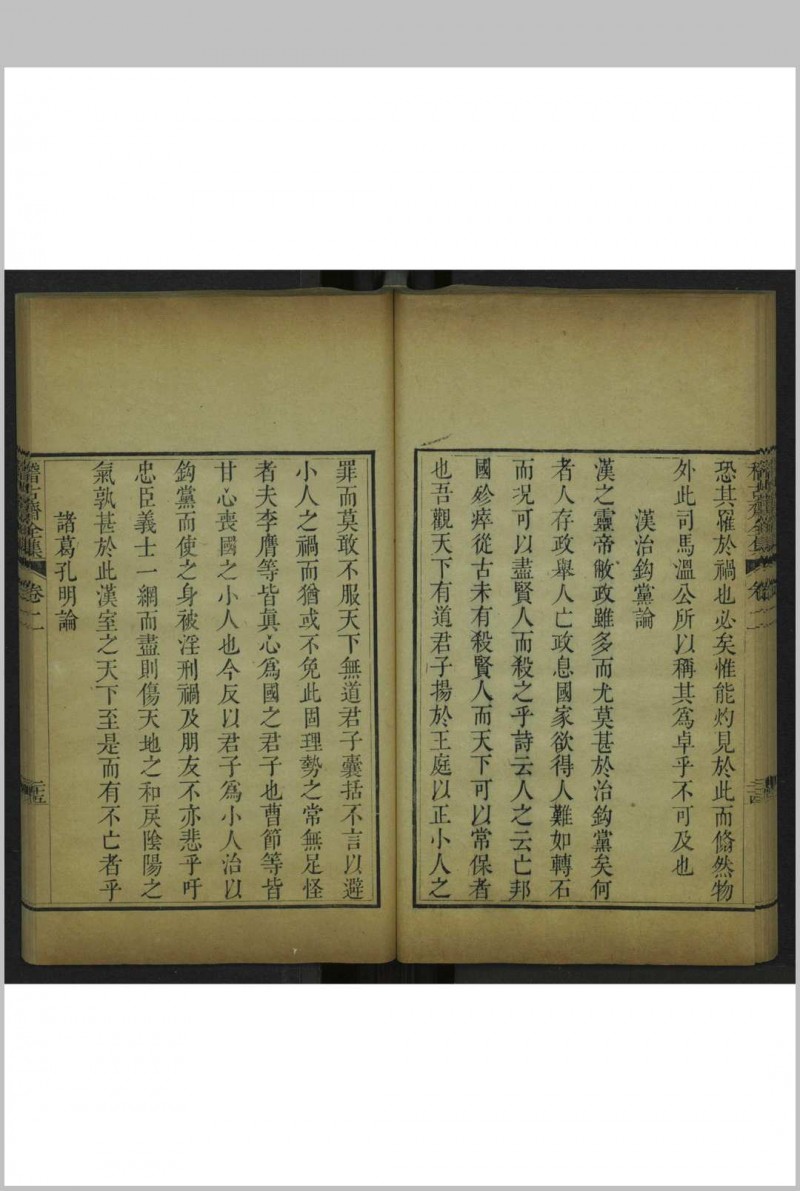 恐其罹於禍也必矣惟能灼見於此而翛然物
外此司馬溫公所以稱其爲卓乎不可及也
漢治鈎黨論
漢之靈帝敝政雖多而尤莫甚於治鈎黨矣何
者人存政舉人亡政息國家欲得人難如轉石
而况可以盡賢人而殺之乎詩云人之云亡邦
國殄瘁從古未有殺賢人而天下可以常保者
也吾觀天下有道君子揚於王庭以正小人之
罪而莫敢不服天下無道君子囊括不言以避
小人之禍而猶或不免此固理勢之常無足怪
者夫李膺等皆眞心爲國之君子也曹節等皆
甘心喪國之小人也今反以君子爲小人治以
鈎黨而使之身被淫刑禍及朋友不亦悲乎吁
忠臣義士一網而盡則傷天地之和戾陰陽之
氣孰甚於此漢室之天下至是而有不亡者乎
諸葛孔明論
稽古齋全集
卷二